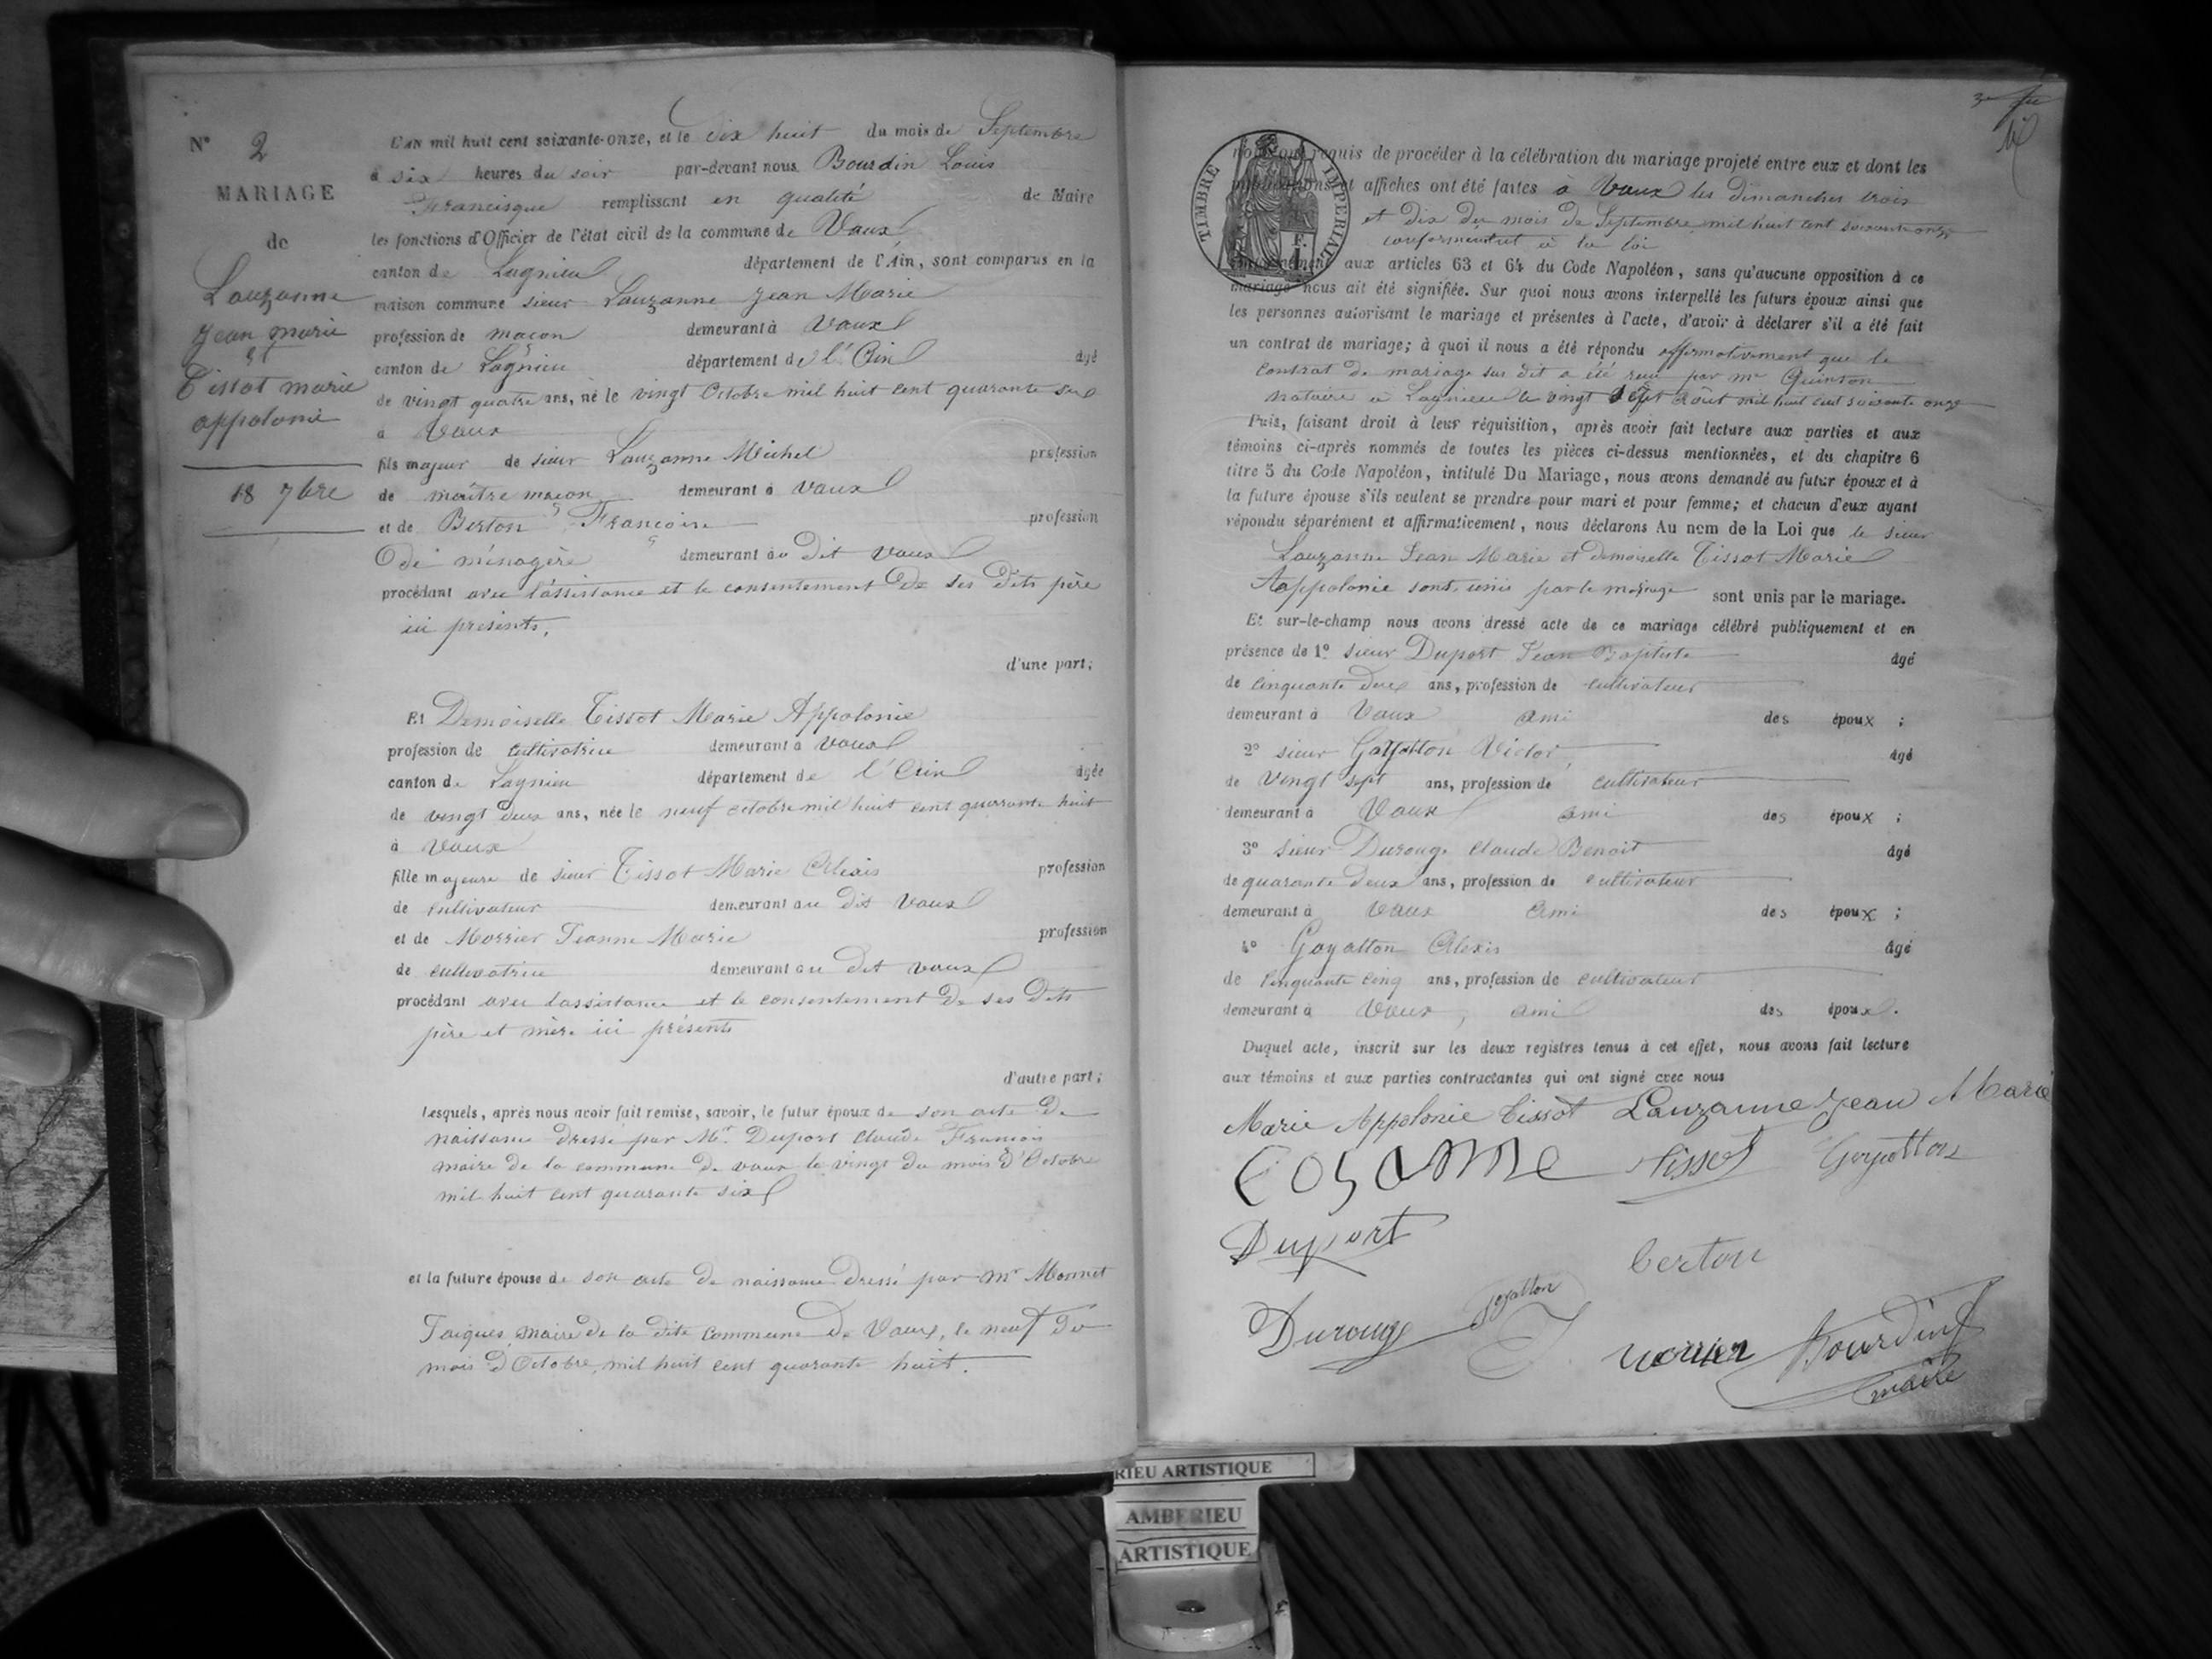 N° 2
MARIAGE
de
Lauzanne
Jean marie
et
Tissot marie
appolonie
18 7bre
L'AN mil huit cent soixante-onze, et le dix huit du mois de Septembre
à six heures du soir par-devant nous Bourdin Louis
Francisque remplissant en qualité de Maire
les fonctions d'Officier de l'état civil de la commune de Vaux
canton de Lagnieu département de l'Ain, sont comparus en la
maison commune sieur Lauzanne Jean Marie
profession de maçon demeurant à Vaux
canton de Lagnieu département de l'Ain âgé
de vingt quatre ans, né le vingt Octobre mil huit cent quarante six
à Vaux
fils majeur de sieur Lauzanne Michel profession
de maître maçon demeurant à Vaux
et de Berton Françoise profession
de ménagère demeurant au dit Vaux
procédant avec l'assistance et le consentement de ses dits père
ici présents,
d'une part;
Et Demoiselle Tissot Marie Appolonie
profession de cultivatrice demeurant à Vaux
canton de Lagnieu département de l'Ain âgée
de vingt deux ans, née le neuf octobre mil huit cent quarante huit
à Vaux
fille majeure de sieur Tissot Marie Alexis profession
de cultivateur demeurant au dit Vaux
et de Morrier Jeanne Marie profession
de cultivatrice demeurant au dit vaux
procédant avec l'assistance et le consentement de ses dits
père et mère ici présents
d'autre part;
Lesquels, après nous avoir fait remise, savoir, le futur époux de son acte de
naissance dressé par Mr. Duport Claude François
maire de la commune de vaux le vingt du mois d'Octobre
mil huit cent quarante six
et la future épouse de son acte de naissance dressé par mr Monnet
Jacques, maire de la dite commune de Vaux, le neuf du
mois d'Octobre, mil huit cent quarante huit.
TIMBRE IMPERIAL
1 F.
requis de procéder à la célébration du mariage projeté entre eux et dont les
publications et affiches ont été faites à Vaux les dimanches trois
et dix du mois de Septembre mil huit cent soixante onze
conformément à la loi
aux articles 63 et 64 du Code Napoléon, sans qu'aucune opposition à ce
mariage nous ait été signifiée. Sur quoi nous avons interpellé les futurs époux ainsi que
les personnes autorisant le mariage et présentes à l'acte, d'avoir à déclarer s'il a été fait
un contrat de mariage; à quoi il nous a été répondu affirmativement que le
contrat de mariage sus dit a été reçu par me Quinton
notaire à Lagnieu le vingt sept août mil huit cent soixante onze
Puis, faisant droit à leur réquisition, après avoir fait lecture aux parties et aux
témoins ci-après nommés de toutes les pièces ci-dessus mentionnées, et du chapitre 6
titre 5 du Code Napoléon, intitulé Du Mariage, nous avons demandé au futur époux et à
la future épouse s'ils veulent se prendre pour mari et pour femme; et chacun d'eux ayant
répondu séparément et affirmativement, nous déclarons Au nom de la Loi que le sieur
Lauzanne Jean Marie et demoiselle Tissot Marie
Appolonie sont unis par le mariage sont unis par le mariage.
Et sur-le-champ nous avons dressé acte de ce mariage célébré publiquement et en
présence de 1° sieur Duport Jean Baptiste âgé
de cinquante deux ans, profession de cultivateur
demeurant à Vaux ami des époux ;
2° sieur Goyatton Victor, âgé
de vingt sept ans, profession de cultivateur
demeurant à Vaux ami des époux ;
3° sieur Durouge Claude Benoit âgé
de quarante deux ans, profession de cultivateur
demeurant à Vaux ami des époux ;
4° Goyatton Alexis âgé
de cinquante cinq ans, profession de cultivateur
demeurant à Vaux, ami des époux.
Duquel acte, inscrit sur les deux registres tenus à cet effet, nous avons fait lecture
aux témoins et aux parties contractantes qui ont signé avec nous
Marie Appolonie Tissot Lauzanne Jean Marie
Losanne Tissot Goyatton
Duport
berton
Durouge goyatton
morrier Bourdin
maire
RIEU ARTISTIQUE
AMBERIEU
ARTISTIQUE